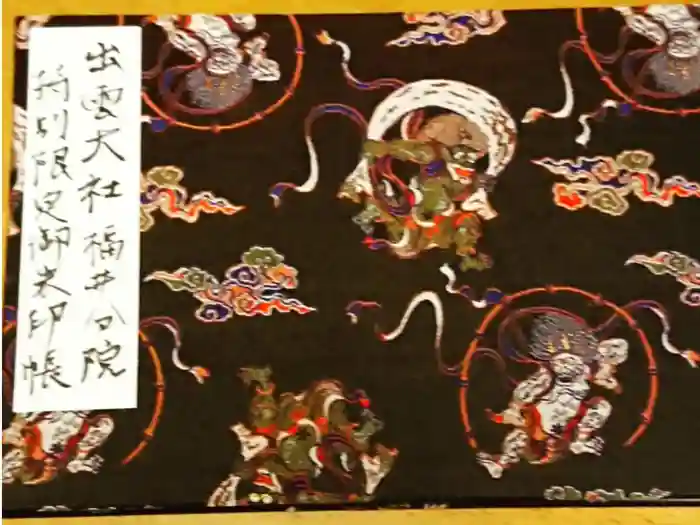 出雲大社福井分院
特別限定御朱印帳